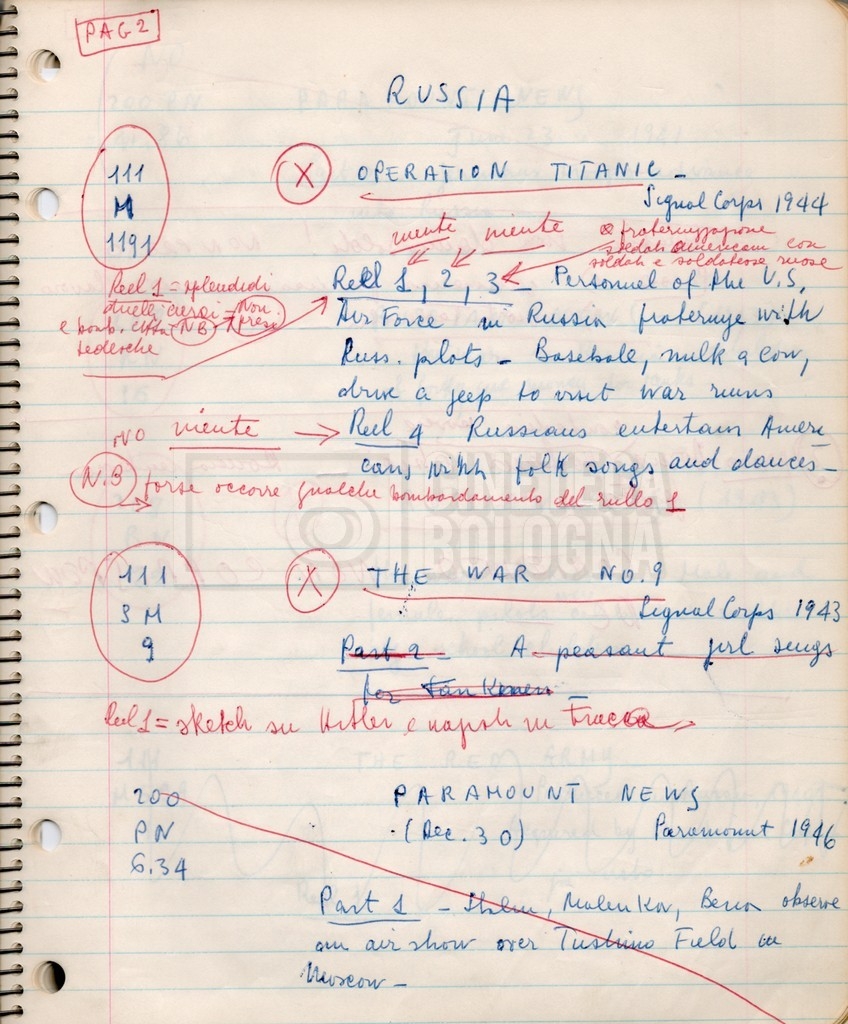 PAG 2
RUSSIA
111
M
1191
X OPERATION TITANIC -
Signal Corps 1944
niente niente fraternizzazione
soldati americani con
soldati e soldatesse russe
Reel 1 = splendidi
duelli aerei - Non prese
e bomb. città N.B
tedesche
Reel 1, 2, 3 - Personnel of the U.S.
Air Force in Russia fraternize with
Russ. pilots - Baseball, milk a cow,
drive a jeep to visit war ruins
NO niente → Reel 4 Russians entertain Ameri-
cans with folk songs and dances -
N.B forse occorre qualche bombardamento del rullo 1
CINETECA
BOLOGNA
111
3 M
9
X THE WAR NO. 9
Signal Corps 1943
Part 2 - A peasant girl sings
for
Reel 1 = sketch su Hitler e
200
PN
6.34
PARAMOUNT NEWS
(Dec. 30) Paramount 1946
Part 1 - Stalin, Malenkov, Beria observe
an air show over Tushino Field in
Moscow -